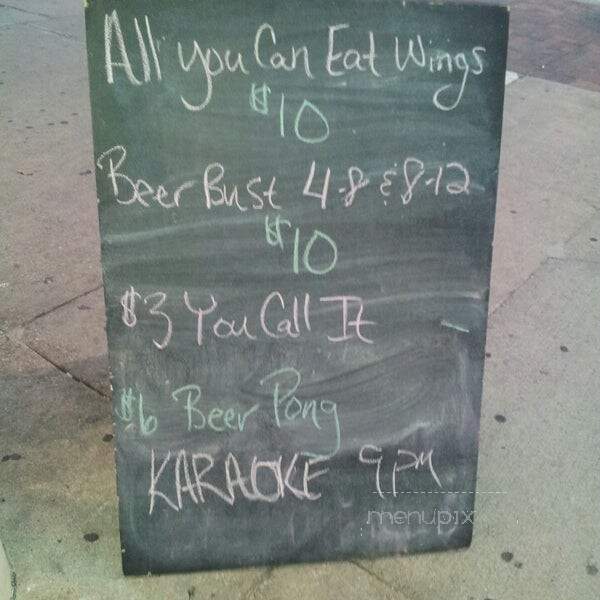 All you Can Eat Wings
$10
Beer Bust 4-8 & 8-12
$10
$3 You Call It
$6 Beer Pong
KARAOKE 9pm
menupix